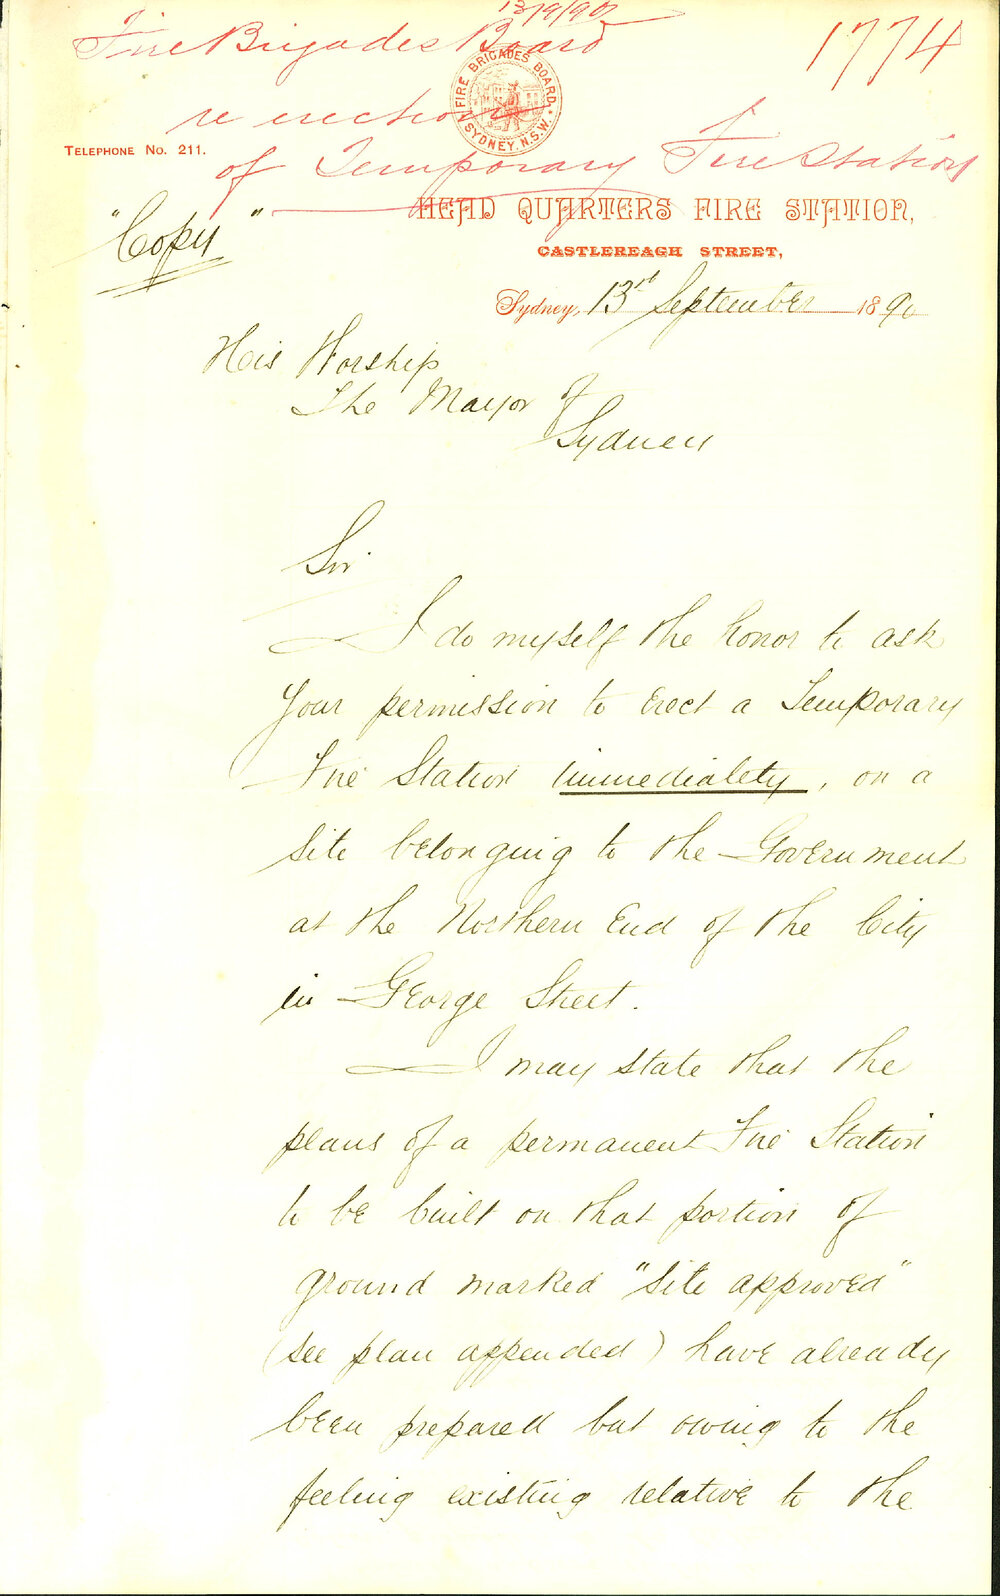 13/9/90
Fire Brigades Board
1774
re erection
of Temporary Fire Station
FIRE BRIGADES BOARD
SYDNEY, N.S.W.
TELEPHONE NO. 211.
"Copy"
HEAD QUARTERS FIRE STATION,
CASTLEREAGH STREET,
Sydney, 13rd September 1890
His Worship
The Mayor of
Sydney
Sir
I do myself the honor to ask
your permission to erect a Temporary
Fire Station immediately, on a
site belonging to the Government
at the Northern End of the City
in George Street.
I may state that the
plans of a permanent Fire Station
to be built on that portion of
ground marked "Site approved"
(see plan appended) have already
been prepared but owing to the
feeling existing relative to the